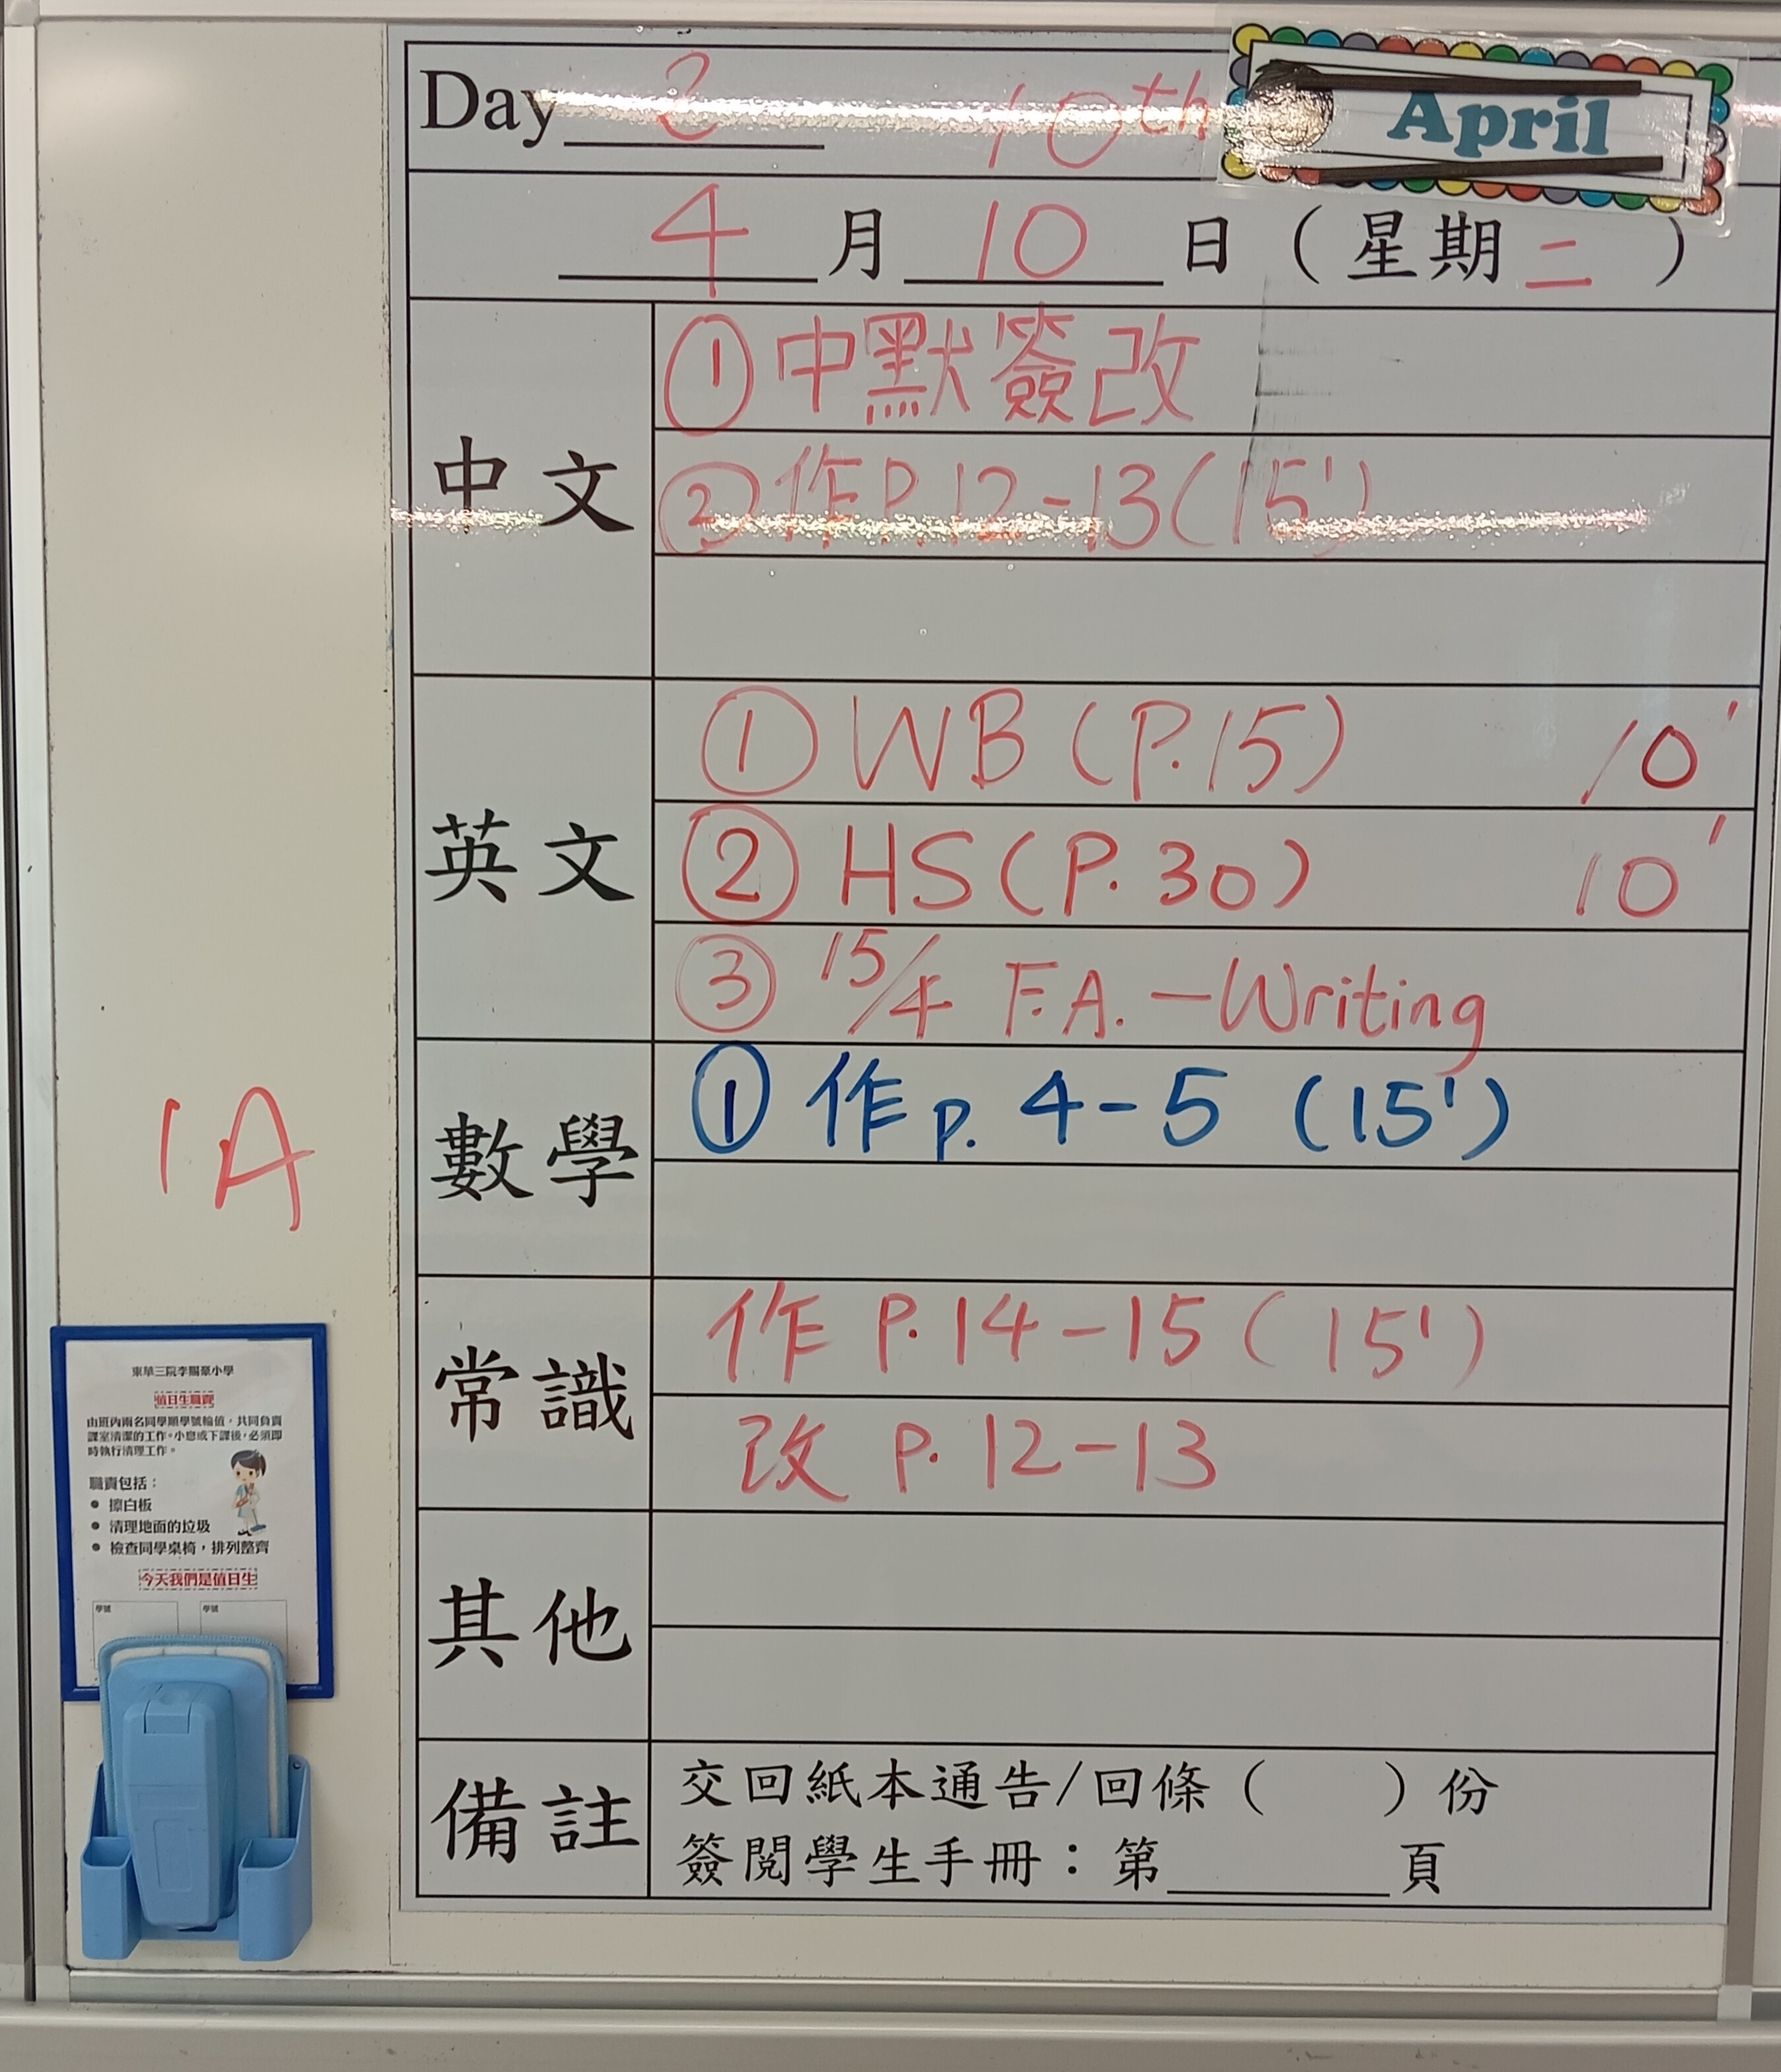 Day 2 10th April
4 月 10 日 ( 星期 二 )
中文
① 中默簽改
② 作P.12-13(15')
英文
① WB (P.15) 10'
② HS (P.30) 10'
③ 15/4 F.A. - Writing
數學
① 作 p. 4-5 (15')
常識
作 P.14-15 (15')
改 P.12-13
其他
備註
交回紙本通告/回條 ( ) 份
簽閱學生手冊：第______頁
1A
東華三院李賜豪小學
值日生職責
由班內兩名同學順學號輪值，共同負責
課室清潔的工作。小息或下課後，必須即
時執行清理工作。
職責包括：
• 擦白板
• 清理地面的垃圾
• 檢查同學桌椅，排列整齊
今天我們是值日生
學號 學號